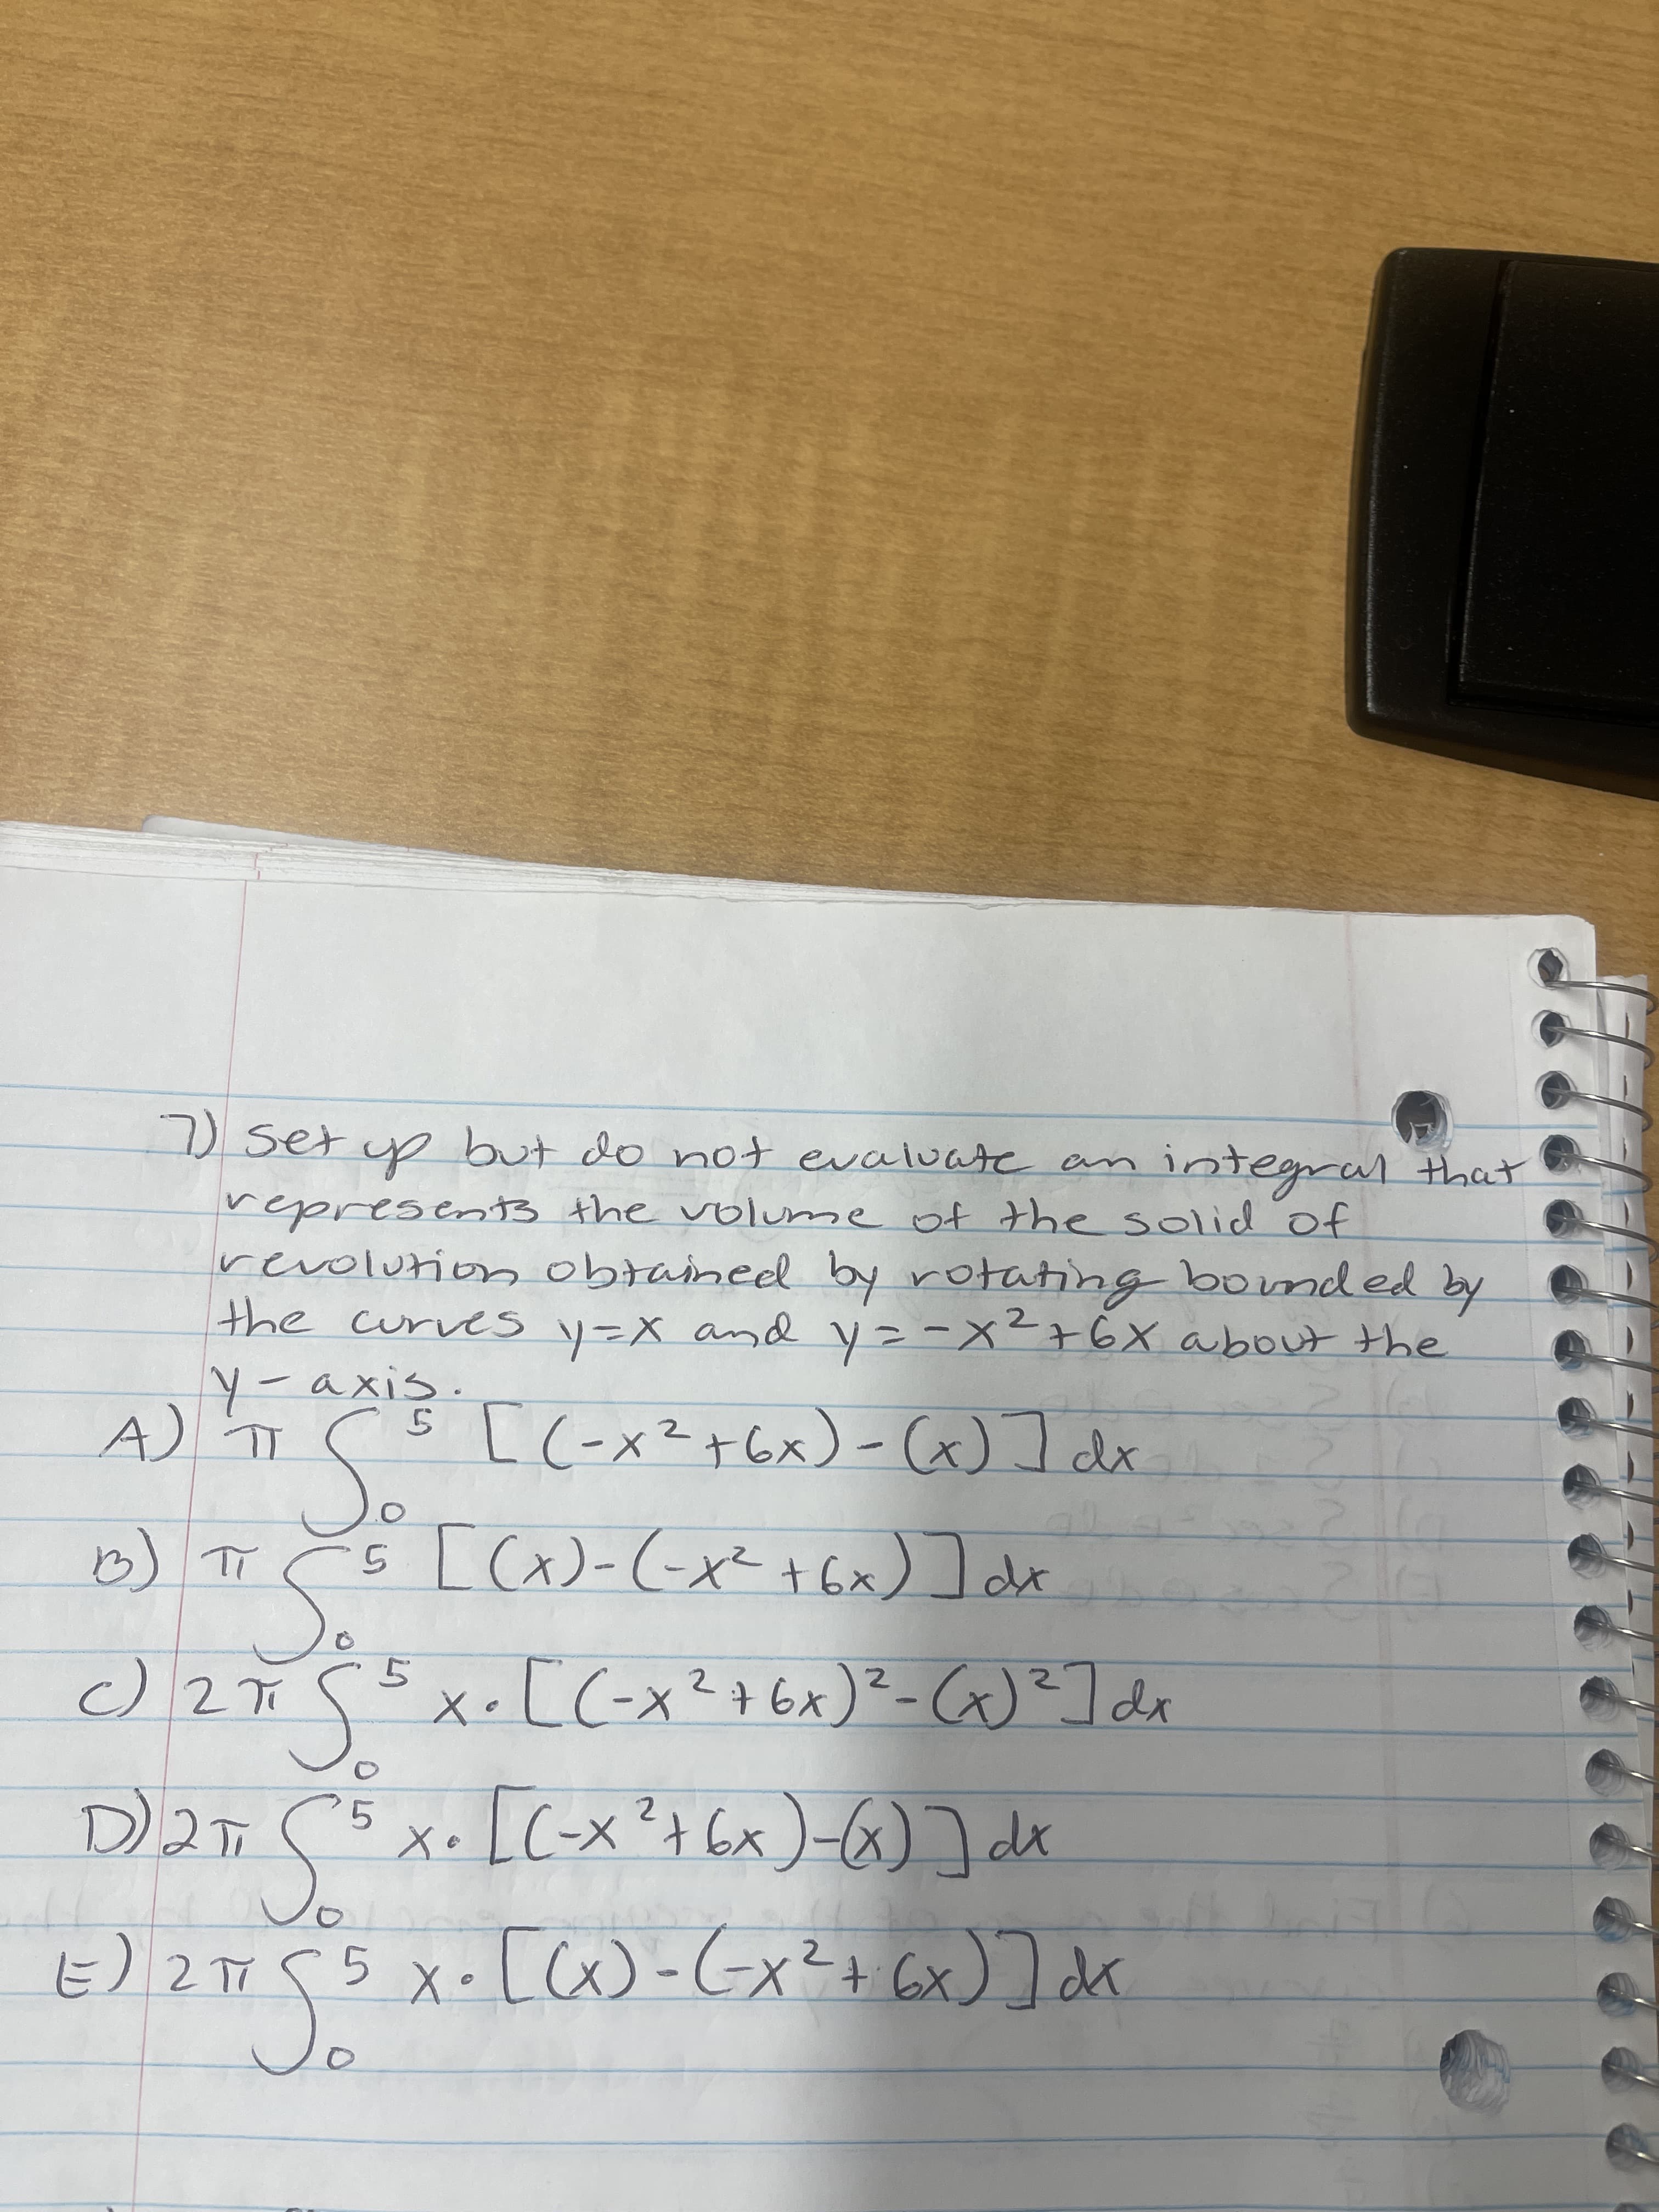 7) Set up but do not evaluate an integral that
represents the volume of the solid of
revolution obtained by rotating bounded by
the curves y=x and y=-x²+6x about the
y-axis.
A) π ∫₀⁵ [(-x²+6x)-(x)] dx
B) π ∫₀⁵ [(x)-(-x²+6x)] dx
C) 2π ∫₀⁵ x·[(-x²+6x)²-(x)²] dx
D) 2π ∫₀⁵ x·[(-x²+6x)-(x)] dx
E) 2π ∫₀⁵ x·[(x)-(-x²+6x)] dx